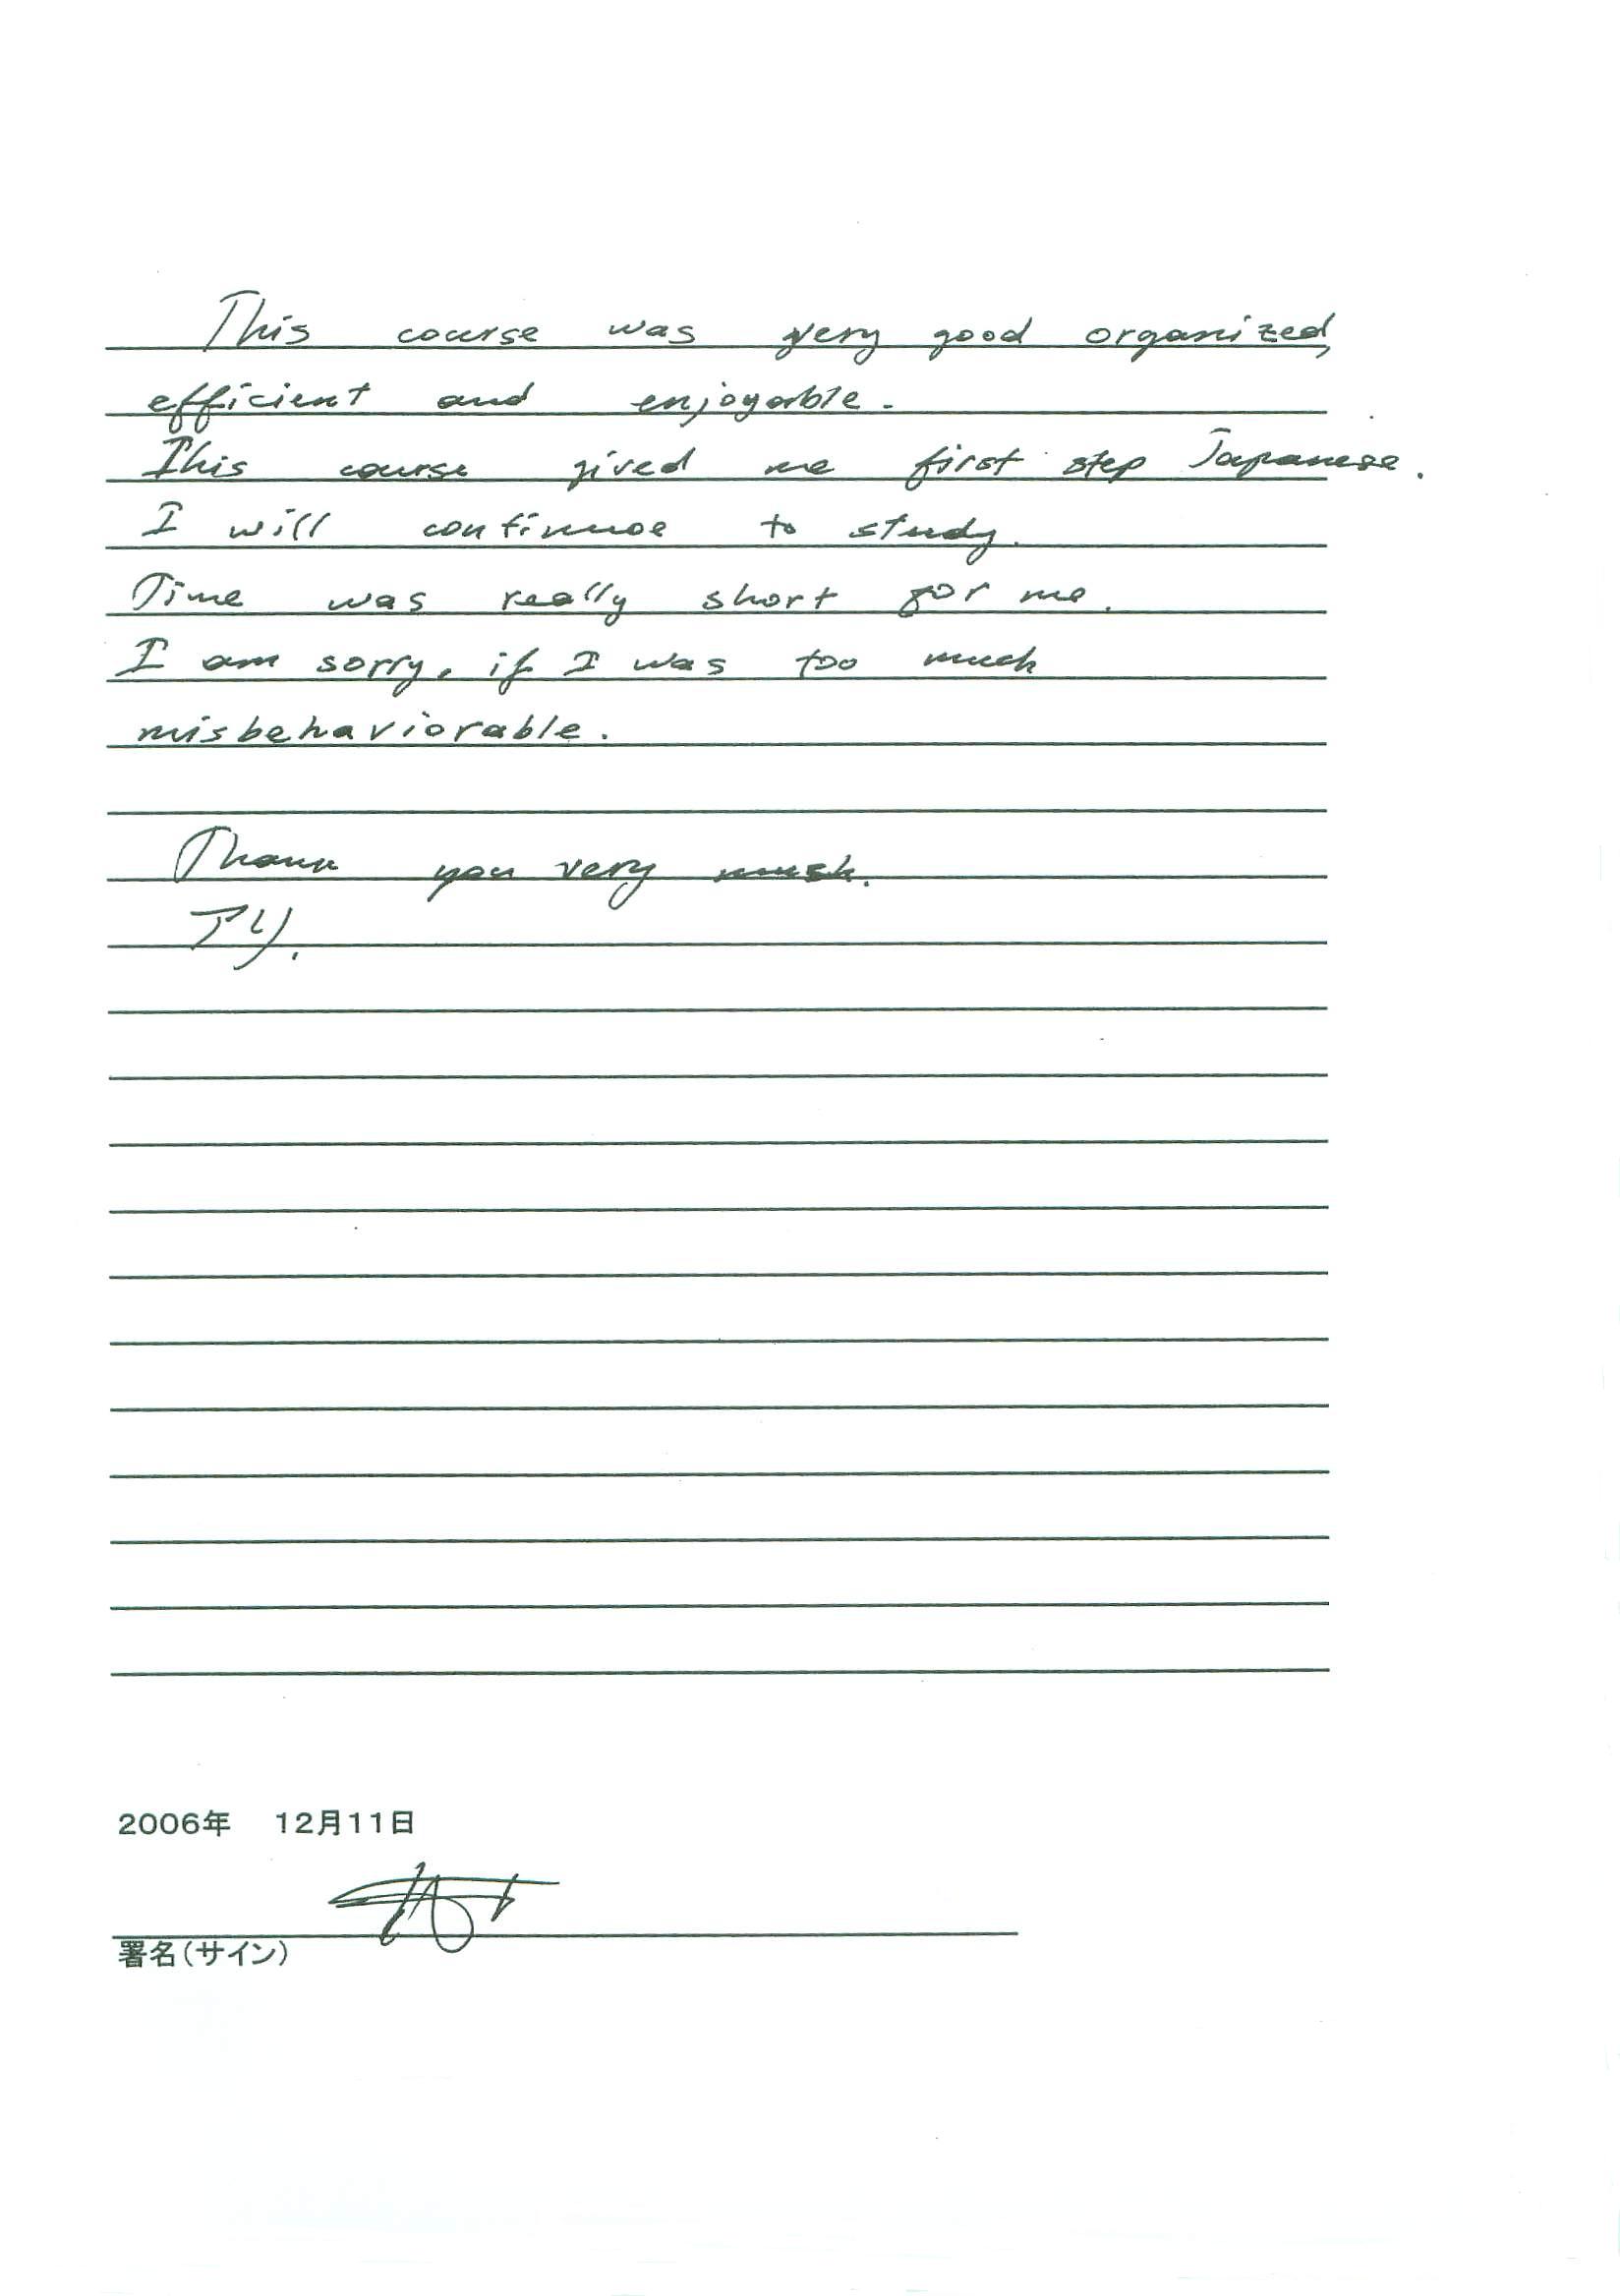 This course was very good organized,
efficient and enjoyable.
This course gived me first step Japanese.
I will continuoe to study.
Time was really short for me.
I am sorry, if I was too much
misbehaviorable.
Thank you very much.
アリ.
2006年 12月11日
署名(サイン)